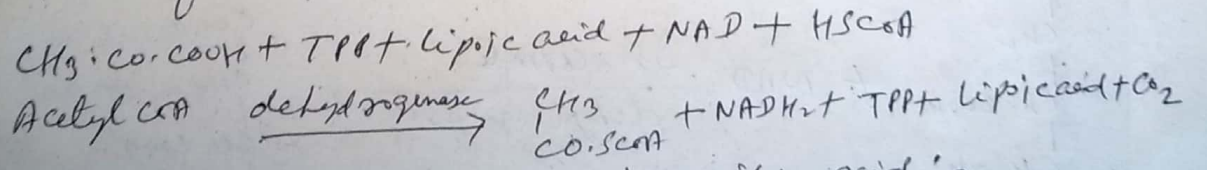 CH3·CO·COOH + TPP + lipoic acid + NAD + HSCoA
Acetyl CoA dehydrogenase → CH3 + NADH2 + TPP + Lipoic acid + CO2
CO.SCoA